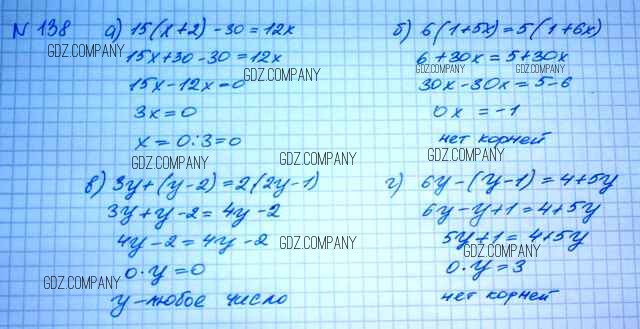 N 138
а) 15(x+2)-30=12x
15x+30-30=12x
15x-12x=0
3x=0
x=0:3=0
б) 6(1+5x)=5(1+6x)
6+30x=5+30x
30x-30x=5-6
0x=-1
нет корней
в) 3y+(y-2)=2(2y-1)
3y+y-2=4y-2
4y-2=4y-2
0·y=0
y-любое число
г) 6y-(y-1)=4+5y
6y-y+1=4+5y
5y+1=4+5y
0·y=3
нет корней
GDZ.COMPANY
GDZ.COMPANY
GDZ.COMPANY
GDZ.COMPANY
GDZ.COMPANY
GDZ.COMPANY
GDZ.COMPANY
GDZ.COMPANY
GDZ.COMPANY
GDZ.COMPANY
GDZ.COMPANY
GDZ.COMPANY